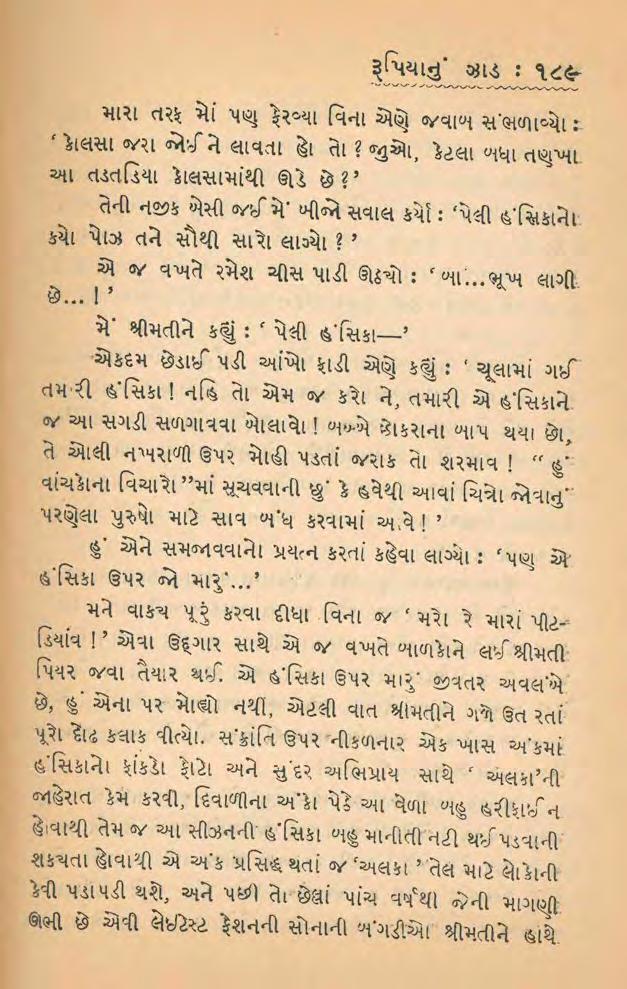 રૂપિયાનું ઝાડ : ૧૮૯
મારા તરફ મેાં પણ ફેરવ્યા વિના એણે જવાબ સંભળાવ્યો :
‘ કોલસા જરા જોઈ ને લાવતા હો તો ? જુઓ, કેટલા બધા તણખા
આ તડતડિયા કોલસામાંથી ઊડે છે ?’
તેની નજીક બેસી જઈ મેં બીજો સવાલ કર્યો : ‘પેલી હંસિકાનો
કયો પોઝ તને સૌથી સારો લાગ્યો ? ’
એ જ વખતે રમેશ ચીસ પાડી ઊઠ્યો : ‘ બા...ભૂખ લાગી
છે... ! ’
મેં શ્રીમતીને કહ્યું : ‘ પેલી હંસિકા—’
એકદમ છેડાઈ પડી આંખો ફાડી એણે કહ્યું : ‘ ચૂલામાં ગઈ
તમારી હંસિકા ! નહિ તો એમ જ કરો ને, તમારી એ હંસિકાને
જ આ સગડી સળગાવવા બોલાવો ! બબ્બે છોકરાના બાપ થયા છો,
તે ઓલી નખરાળી ઉપર મોહી પડતાં જરાક તો શરમાવ ! “ હું
વાંચકોના વિચારો ”માં સૂચવવાની છું કે હવેથી આવાં ચિત્રો જોવાનું
પરણેલા પુરુષો માટે સાવ બંધ કરવામાં આવે ! ’
હું એને સમજાવવાનો પ્રયત્ન કરતાં કહેવા લાગ્યો : ‘ પણ એ
હંસિકા ઉપર જો મારું...’
મને વાકય પૂરું કરવા દીધા વિના જ ‘ મરો રે મારાં પીટ-
ડિયાંવ ! ’ એવા ઉદ્‌ગાર સાથે એ જ વખતે બાળકોને લઈ શ્રીમતી
પિયર જવા તૈયાર થઈ. એ હંસિકા ઉપર મારું જીવતર અવલંબે
છે, હું એના પર મોહ્યો નથી, એટલી વાત શ્રીમતીને ગળે ઉતરતાં
પૂરો દોઢ કલાક વીત્યો. સંક્રાંતિ ઉપર નીકળનાર એક ખાસ અંકમાં
હંસિકાનો ફાંકડો ફોટો અને સુંદર અભિપ્રાય સાથે ‘ અલકા’ની
જાહેરાત કેમ કરવી, દિવાળીના અંકો પેઠે આ વેળા બહુ હરીફાઈ ન
હોવાથી તેમ જ આ સીઝનની હંસિકા બહુ માનીતી નટી થઈ પડવાની
શકયતા હોવાથી એ અંક પ્રસિદ્ધ થતાં જ ‘અલકા ’ તેલ માટે લોકોની
કેવી પડાપડી થશે, અને પછી તો છેલ્લાં પાંચ વર્ષથી જેની માગણી
ઊભી છે એવી લેઈટેસ્ટ ફેશનની સોનાની બંગડીઓ શ્રીમતીને હાથે